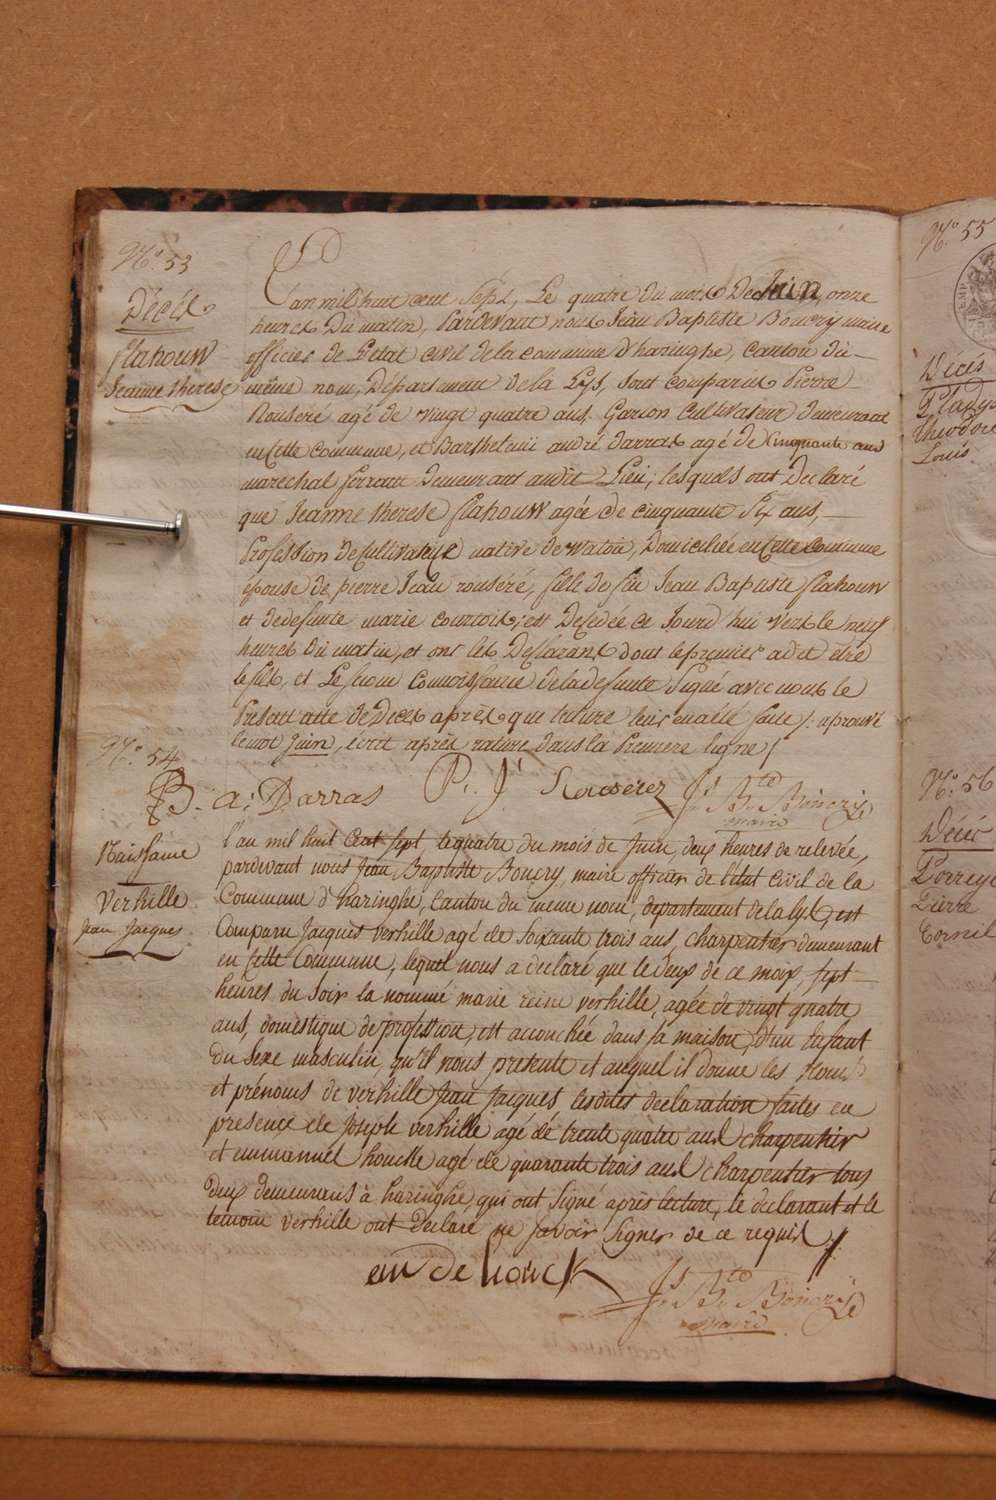 N.o 53
Décès
flahouw
Jeanne therese
L'an mil huit cent Sept, Le quatre du mois De Juin, onze
heures Du matin, Pardevant nous Jean Baptiste Boucry maire
officier de L'etat civil de la commune d'haringhe, canton du
même nom, Département de la Lys, sont comparus Pierre
Rouseré agé de vingt quatre ans, Garcon Cultivateur demeurant
en cette commune, et Barthelmi andré darras agé de cinquante ans
marechal ferrant Demeurant audit Lieu; lesquels ont Declaré
que Jeanne therese flahouw agée de cinquante Six ans,
Profession de cultivatrice native de watou, Domiciliée en cette commune
épouse de pierre Jean rouseré, fille de feu Jean Baptiste flahouw
et de defunte marie courtois; est Decedée ce Jourd'hui vers le neuf
heures du matin, et ons les Deslarans dont le premier a dit etre
le fils, et Le second connoissance de la defunte Signé avec nous le
Present acte de Deces après que lecture leur en a été faite /: aprouvé
le mot Juin, écrit après rature dans la Premiere ligne /
B. a: Darras P. J. Rouserez Js. Bte Boucry
maire
N.o 54
Naissance
Verhille
Jean Jacques
l'an mil huit Cent Sept le quatre du mois de Juin, deux heures de relevée,
pardevant nous Jean Baptiste Boucry, maire officier de l'état Civil de la
Commune d'haringhe, Canton du meme nom, département de la lys, est
Comparu Jacques verhille agé de Soixante trois ans, charpentier demeurant
en cette Commune, lequel nous a declaré que le deux de ce mois, sept
heures du Soir la nommé marie reine verhille, agée de vingt quatre
ans, domestique de profession, est accouchée dans sa maison, d'un Enfant
du Sexe masculin, qu'il nous presente et auquel il donne les Noms
et prénoms de verhille Jean Jacques, lesdites declaration faites en
presence de Joseph verhille agé de trente quatre ans charpentier
et emmanuel houcke agé de quarante trois ans charpentier tous
deux demeurans à haringhe, qui ont signé après lecture, le declarant et le
temoin verhille ont Declaré ne savoir signer de ce requis //
em de houck Js. Bte Boucry
maire
N.o 55
Décès
Theodore
Louis
N.o 56
Décès
Pierre
Cornil